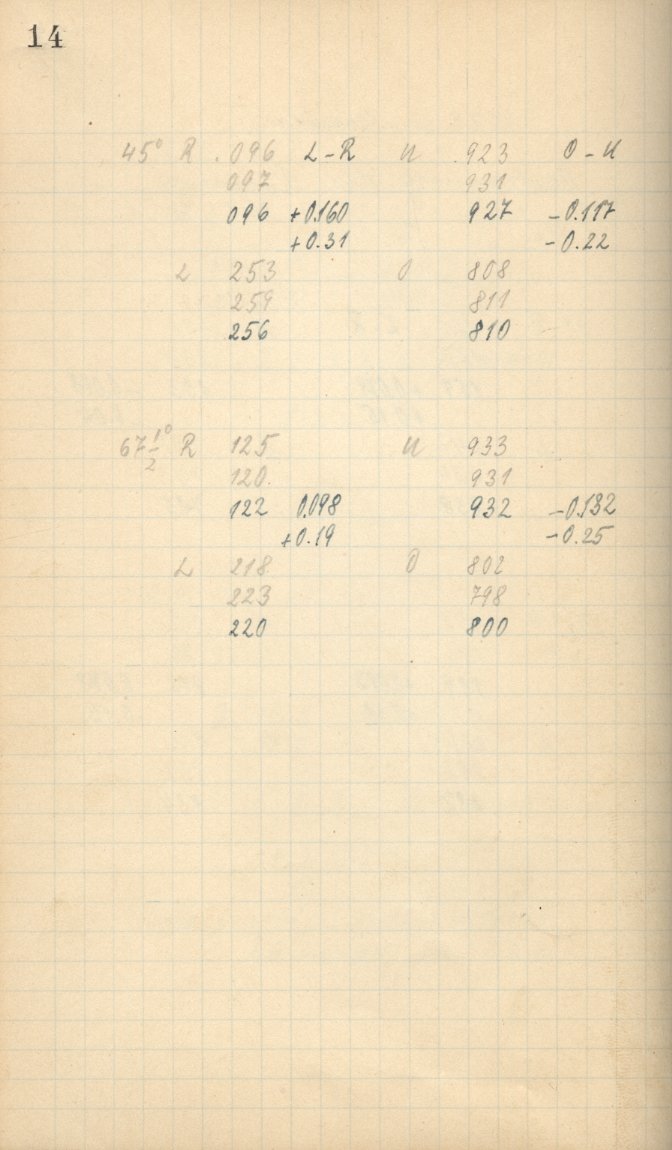 14
45° R .096 L-R U .923 O-U
097 931
096 +0.160 927 -0.117
+0.31 -0.22
L 253 O 808
259 811
256 810
67 1/2° R 125 U 933
120. 931
122 0.098 932 -0.132
+0.19 -0.25
L 218 O 802
223 798
220 800